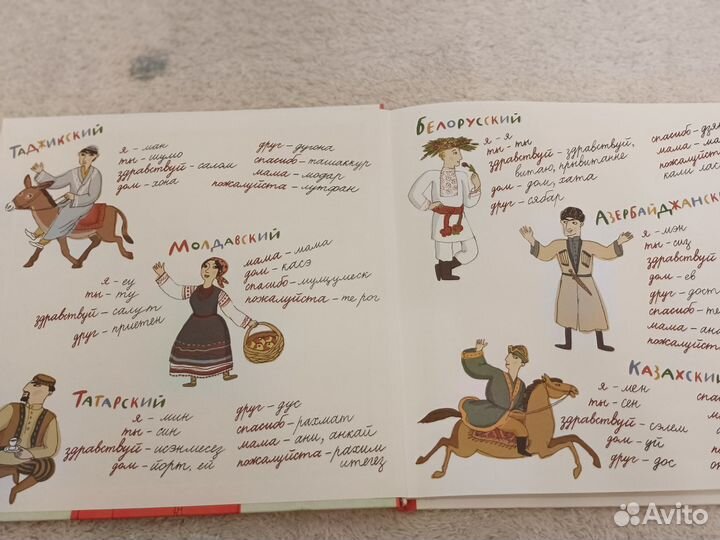 Таджикский
я - ман
ты - шумо
здравствуй - салом
дом - хона
друг - дугона
спасибо - ташаккур
мама - модар
пожалуйста - лутфан
Молдавский
я - еу
ты - ту
здравствуй - салут
друг - приетен
мама - мама
дом - касэ
спасибо - мулцумеск
пожалуйста - те рог
Татарский
я - мин
ты - син
здравствуй - исэнмесез
дом - йорт, ей
друг - дус
спасибо - рахмат
мама - ани, анкай
пожалуйста - рахим
итегез
Белорусский
я - я
ты - ты
здравствуй - здравствуй,
витаю, прывитанне
дом - дом, хата
друг - сябар
спасибо - дзя
мама - ма
пожалуйста
кали лас
Азербайджанск
я - мэн
ты - сиз
здравствуй
дом - ев
друг - дост
спасибо - те
мама - ана
пожалуйста
Казахский
я - мен
ты - сен
здравствуй - сэлем
дом - уй
друг - дос
Avito